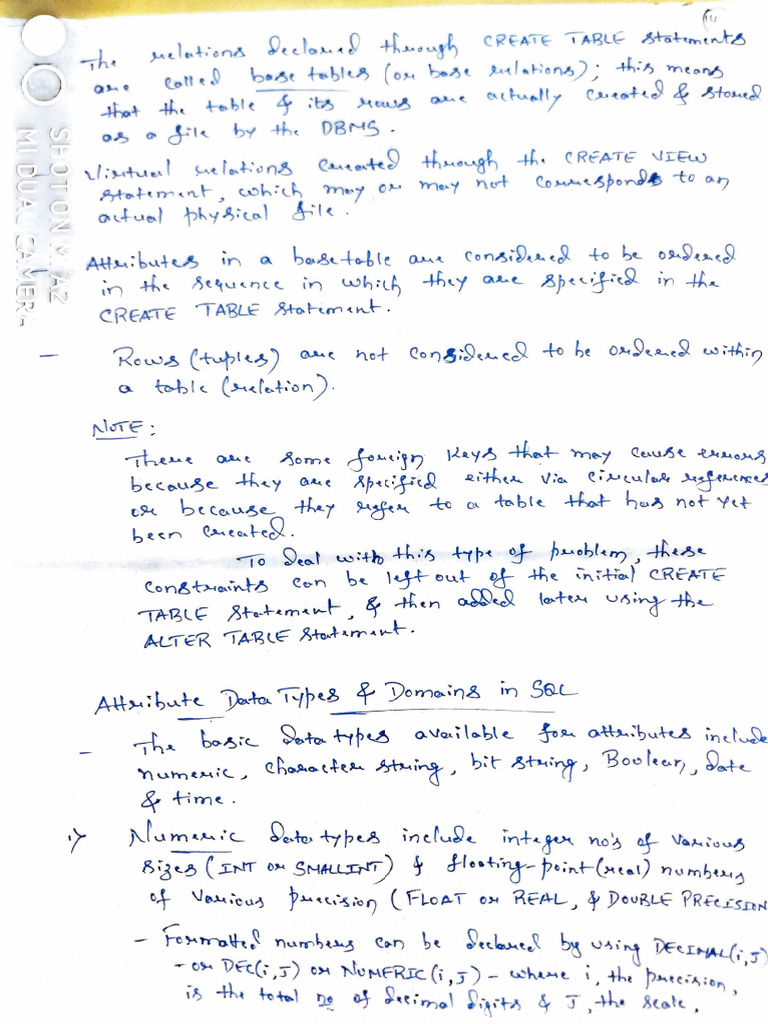 The relations declared through CREATE TABLE statements
are called base tables (or base relations); this means
that the table & its rows are actually created & stored
as a file by the DBMS.
Virtual relations created through the CREATE VIEW
statement, which may or may not corresponds to an
actual physical file.
Attributes in a base table are considered to be ordered
in the sequence in which they are specified in the
CREATE TABLE statement.
– Rows (tuples) are not considered to be ordered within
a table (relation).
NOTE:
There are some foreign keys that may cause errors
because they are specified either via circular references
or because they refer to a table that has not yet
been created.
To deal with this type of problem, these
constraints can be left out of the initial CREATE
TABLE statement, & then added later using the
ALTER TABLE statement.
Attribute Data Types & Domains in SQL
– The basic data types available for attributes include
numeric, character string, bit string, Boolean, date
& time.
i> Numeric data types include integer no's of various
sizes (INT or SMALLINT) & floating-point (real) numbers
of various precision (FLOAT or REAL, & DOUBLE PRECISION
– Formatted numbers can be declared by using DECIMAL(i,J)
– or DEC(i,J) or NUMERIC(i,J) – where i, the precision,
is the total no of decimal digits & J, the scale,
SHOT ON MI A2
MI DUAL CAMERA